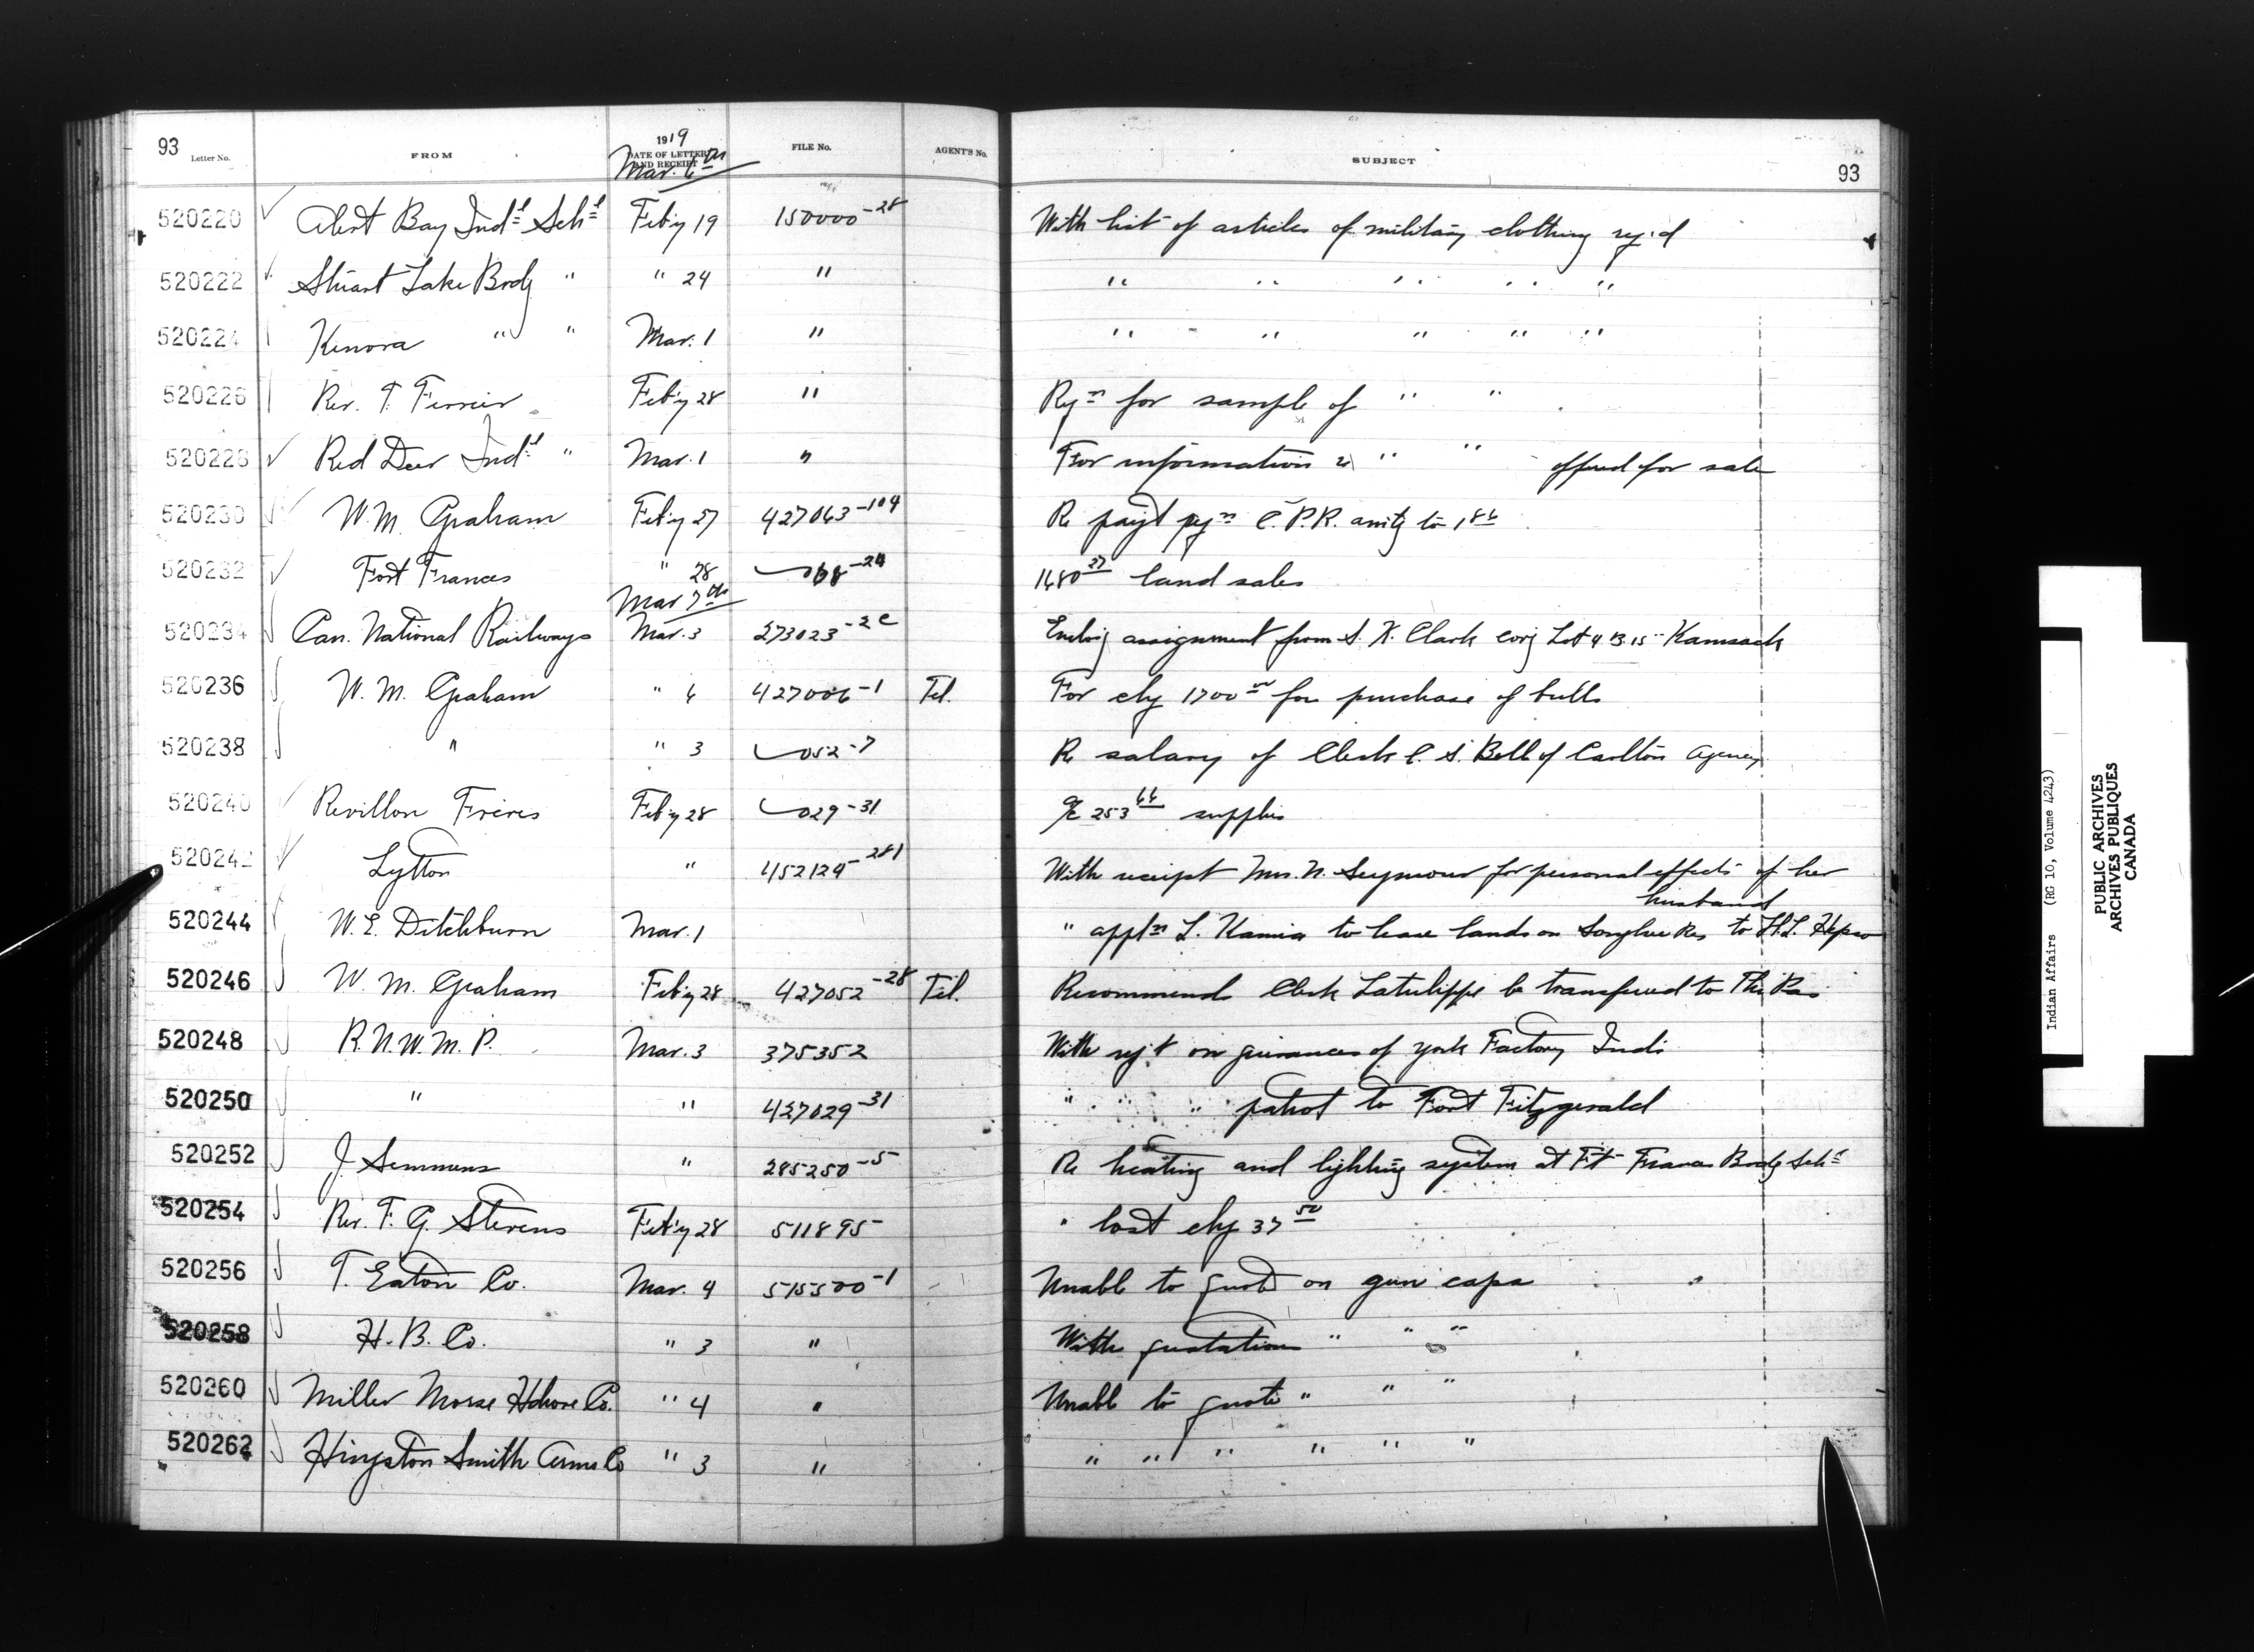 93
Letter No. FROM 1919 DATE OF LETTER AND RECEIPT FILE No. AGENT'S No. SUBJECT 93
Mar. 6th
520220 Alert Bay Indl Schl Feb'y 19 150000-28 With list of articles of military clothing reqd
520222 Stuart Lake Brdg " " 24 " " " " " "
520224 Kenora " " Mar. 1 " " " " " "
520226 Rev. T. Ferrier Feb'y 28 " Reqn for sample of " "
520228 Red Deer Indl " Mar. 1 " For information re " " offered for sale
520230 W. M. Graham Feb'y 27 427063-104 Re payt C.P.R. to
520232 Fort Frances " 28 -24 1680.27 land sales
Mar 7th
520234 Can. National Railways Mar. 3 273023-2c Enclos'g assignment from S. K. Clark cov'g Lot 4 B. 15 Kamsack
520236 W. M. Graham " 6 427006-1 Tel. For chq 1700.00 for purchase of bulls
520238 " " 3 052-7 Re salary of Clerk C. S. Bell of Carlton Agency
520240 Revillon Freres Feb'y 28 029-31 a/c 253.66 supplies
520242 Lytton " 452124-281 With receipt Mrs. N. Seymour for personal effects of her
husband
520244 W. E. Ditchburn Mar. 1 " appln L. to lease lands on Songhees Res to H. L.
520246 W. M. Graham Feb'y 28 427052-28 Tel. Recommends Clerk Latulippe be transferred to The Pas
520248 R.N.W.M.P. Mar. 3 375352 With rep't on grievances of York Factory Inds
520250 " " 427029-31 " " " patrol to Fort Fitzgerald
520252 J. Semmens " 285250-5 Re heating and lighting system at Ft Frances Brdg Schl
520254 Rev. F. G. Stevens Feb'y 28 511895 " lost chq 37.50
520256 T. Eaton Co. Mar. 4 515500-1 Unable to quote on gun caps
520258 H. B. Co. " 3 " With quotations " " "
520260 Miller Morse Hdware Co. " 4 " Unable to quote " " "
520262 Hingston Smith Arms Co " 3 " " " " " " "
Indian Affairs (RG 10, Volume 4243)
PUBLIC ARCHIVES
ARCHIVES PUBLIQUES
CANADA